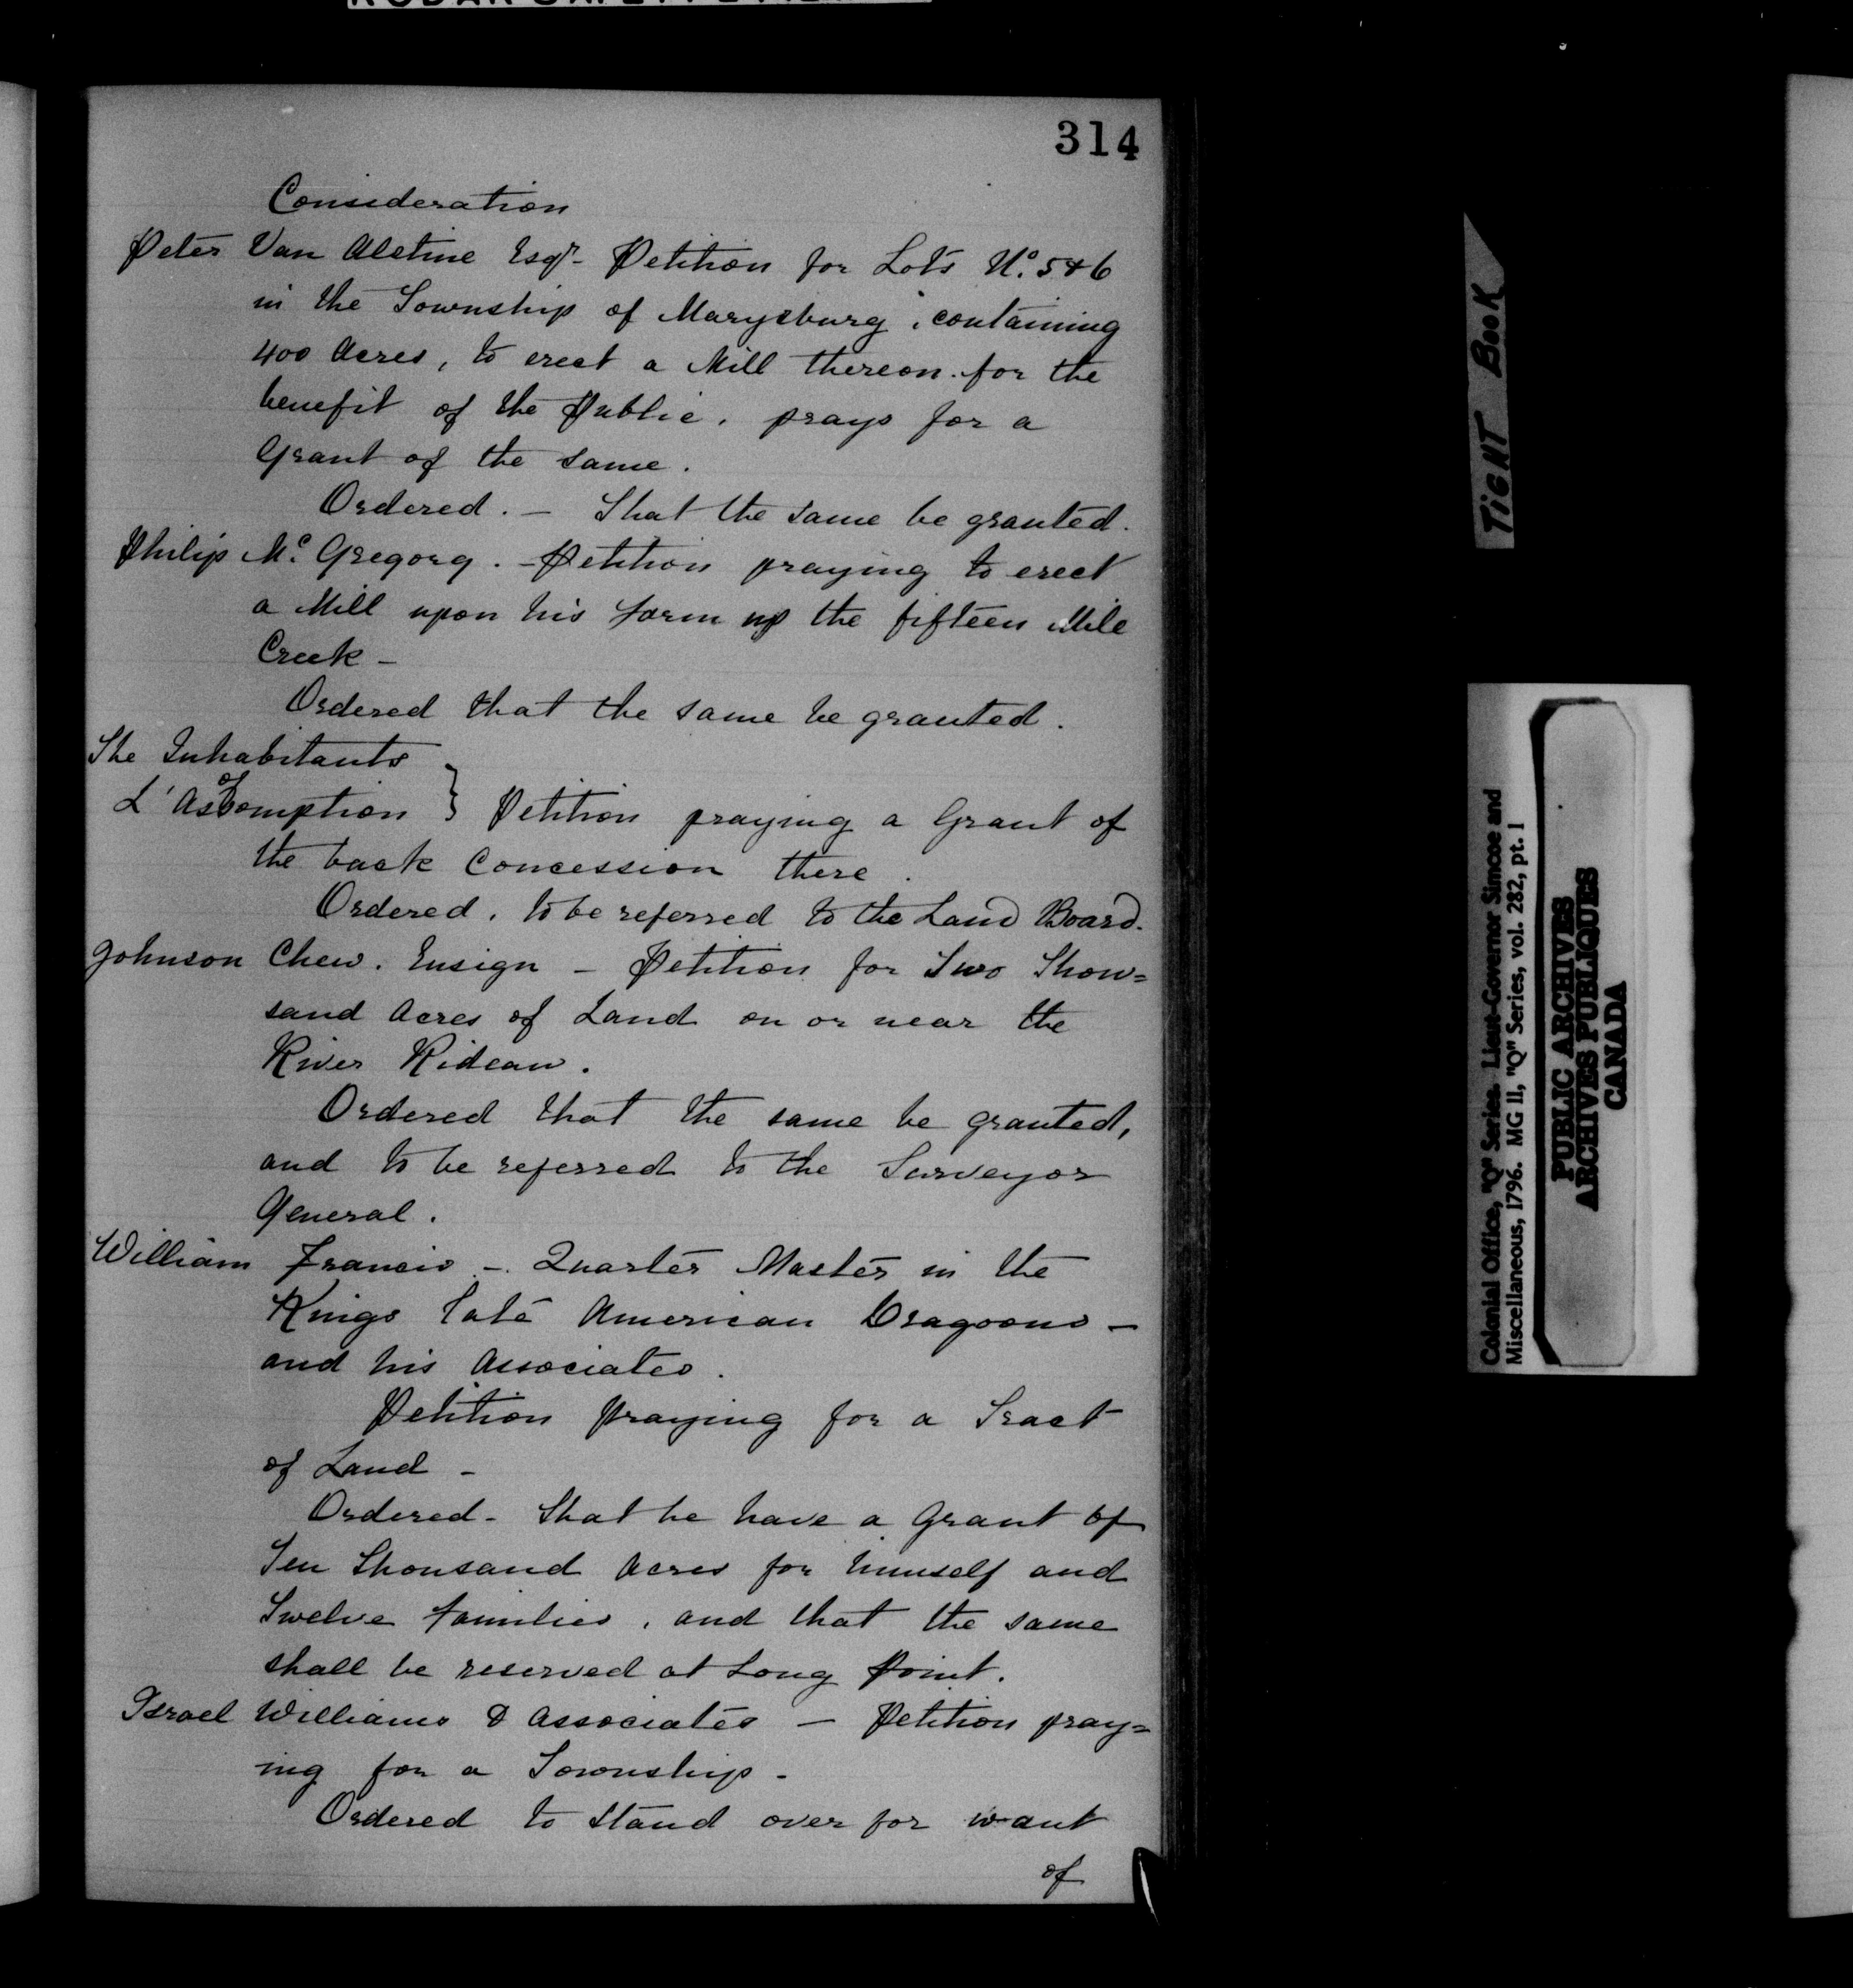 314
Consideration
Peter Van Alstine Esqr. Petition for Lots No. 5 & 6
in the Township of Marysburg, containing
400 Acres, to erect a Mill thereon for the
benefit of the Public, prays for a
Grant of the same.
Ordered. — That the same be granted.
Philip Mc. Gregory. — Petition praying to erect
a Mill upon his farm up the fifteen Mile
Creek —
Ordered that the same be granted.
The Inhabitants
of
L'Assomption } Petition praying a Grant of
the back Concession there.
Ordered, to be referred to the Land Board.
Johnson Chew. Ensign — Petition for Two Thou=
sand Acres of Land on or near the
River Rideau.
Ordered that the same be granted,
and to be referred to the Surveyor
General.
William Francis — Quarter Master in the
Kings late American Dragoons —
and his Associates.
Petition praying for a Tract
of Land —
Ordered — That he have a Grant of
Ten Thousand Acres for himself and
Twelve families, and that the same
shall be reserved at Long Point.
Israel Williams & Associates — Petition pray=
ing for a Township —
Ordered to stand over for want
of
TIGHT BOOK
Colonial Office, "Q" Series. Lieut-Governor Simcoe and
Miscellaneous, 1796. MG 11, "Q" Series, vol. 282, pt. 1
PUBLIC ARCHIVES
ARCHIVES PUBLIQUES
CANADA